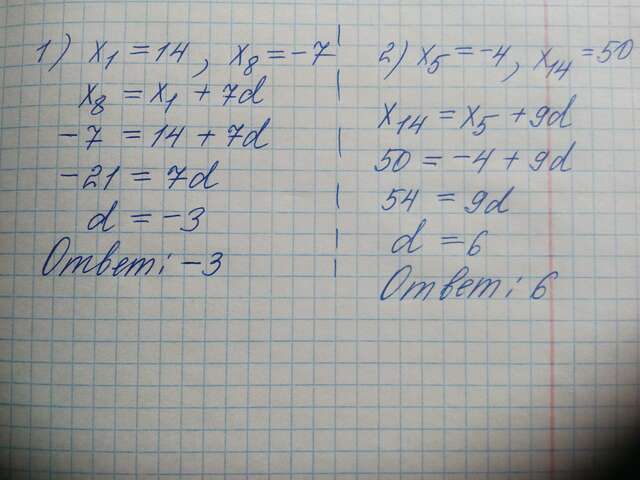 1) x₁ = 14, x₈ = -7
x₈ = x₁ + 7d
-7 = 14 + 7d
-21 = 7d
d = -3
Ответ: -3
2) x₅ = -4, x₁₄ = 50
x₁₄ = x₅ + 9d
50 = -4 + 9d
54 = 9d
d = 6
Ответ: 6